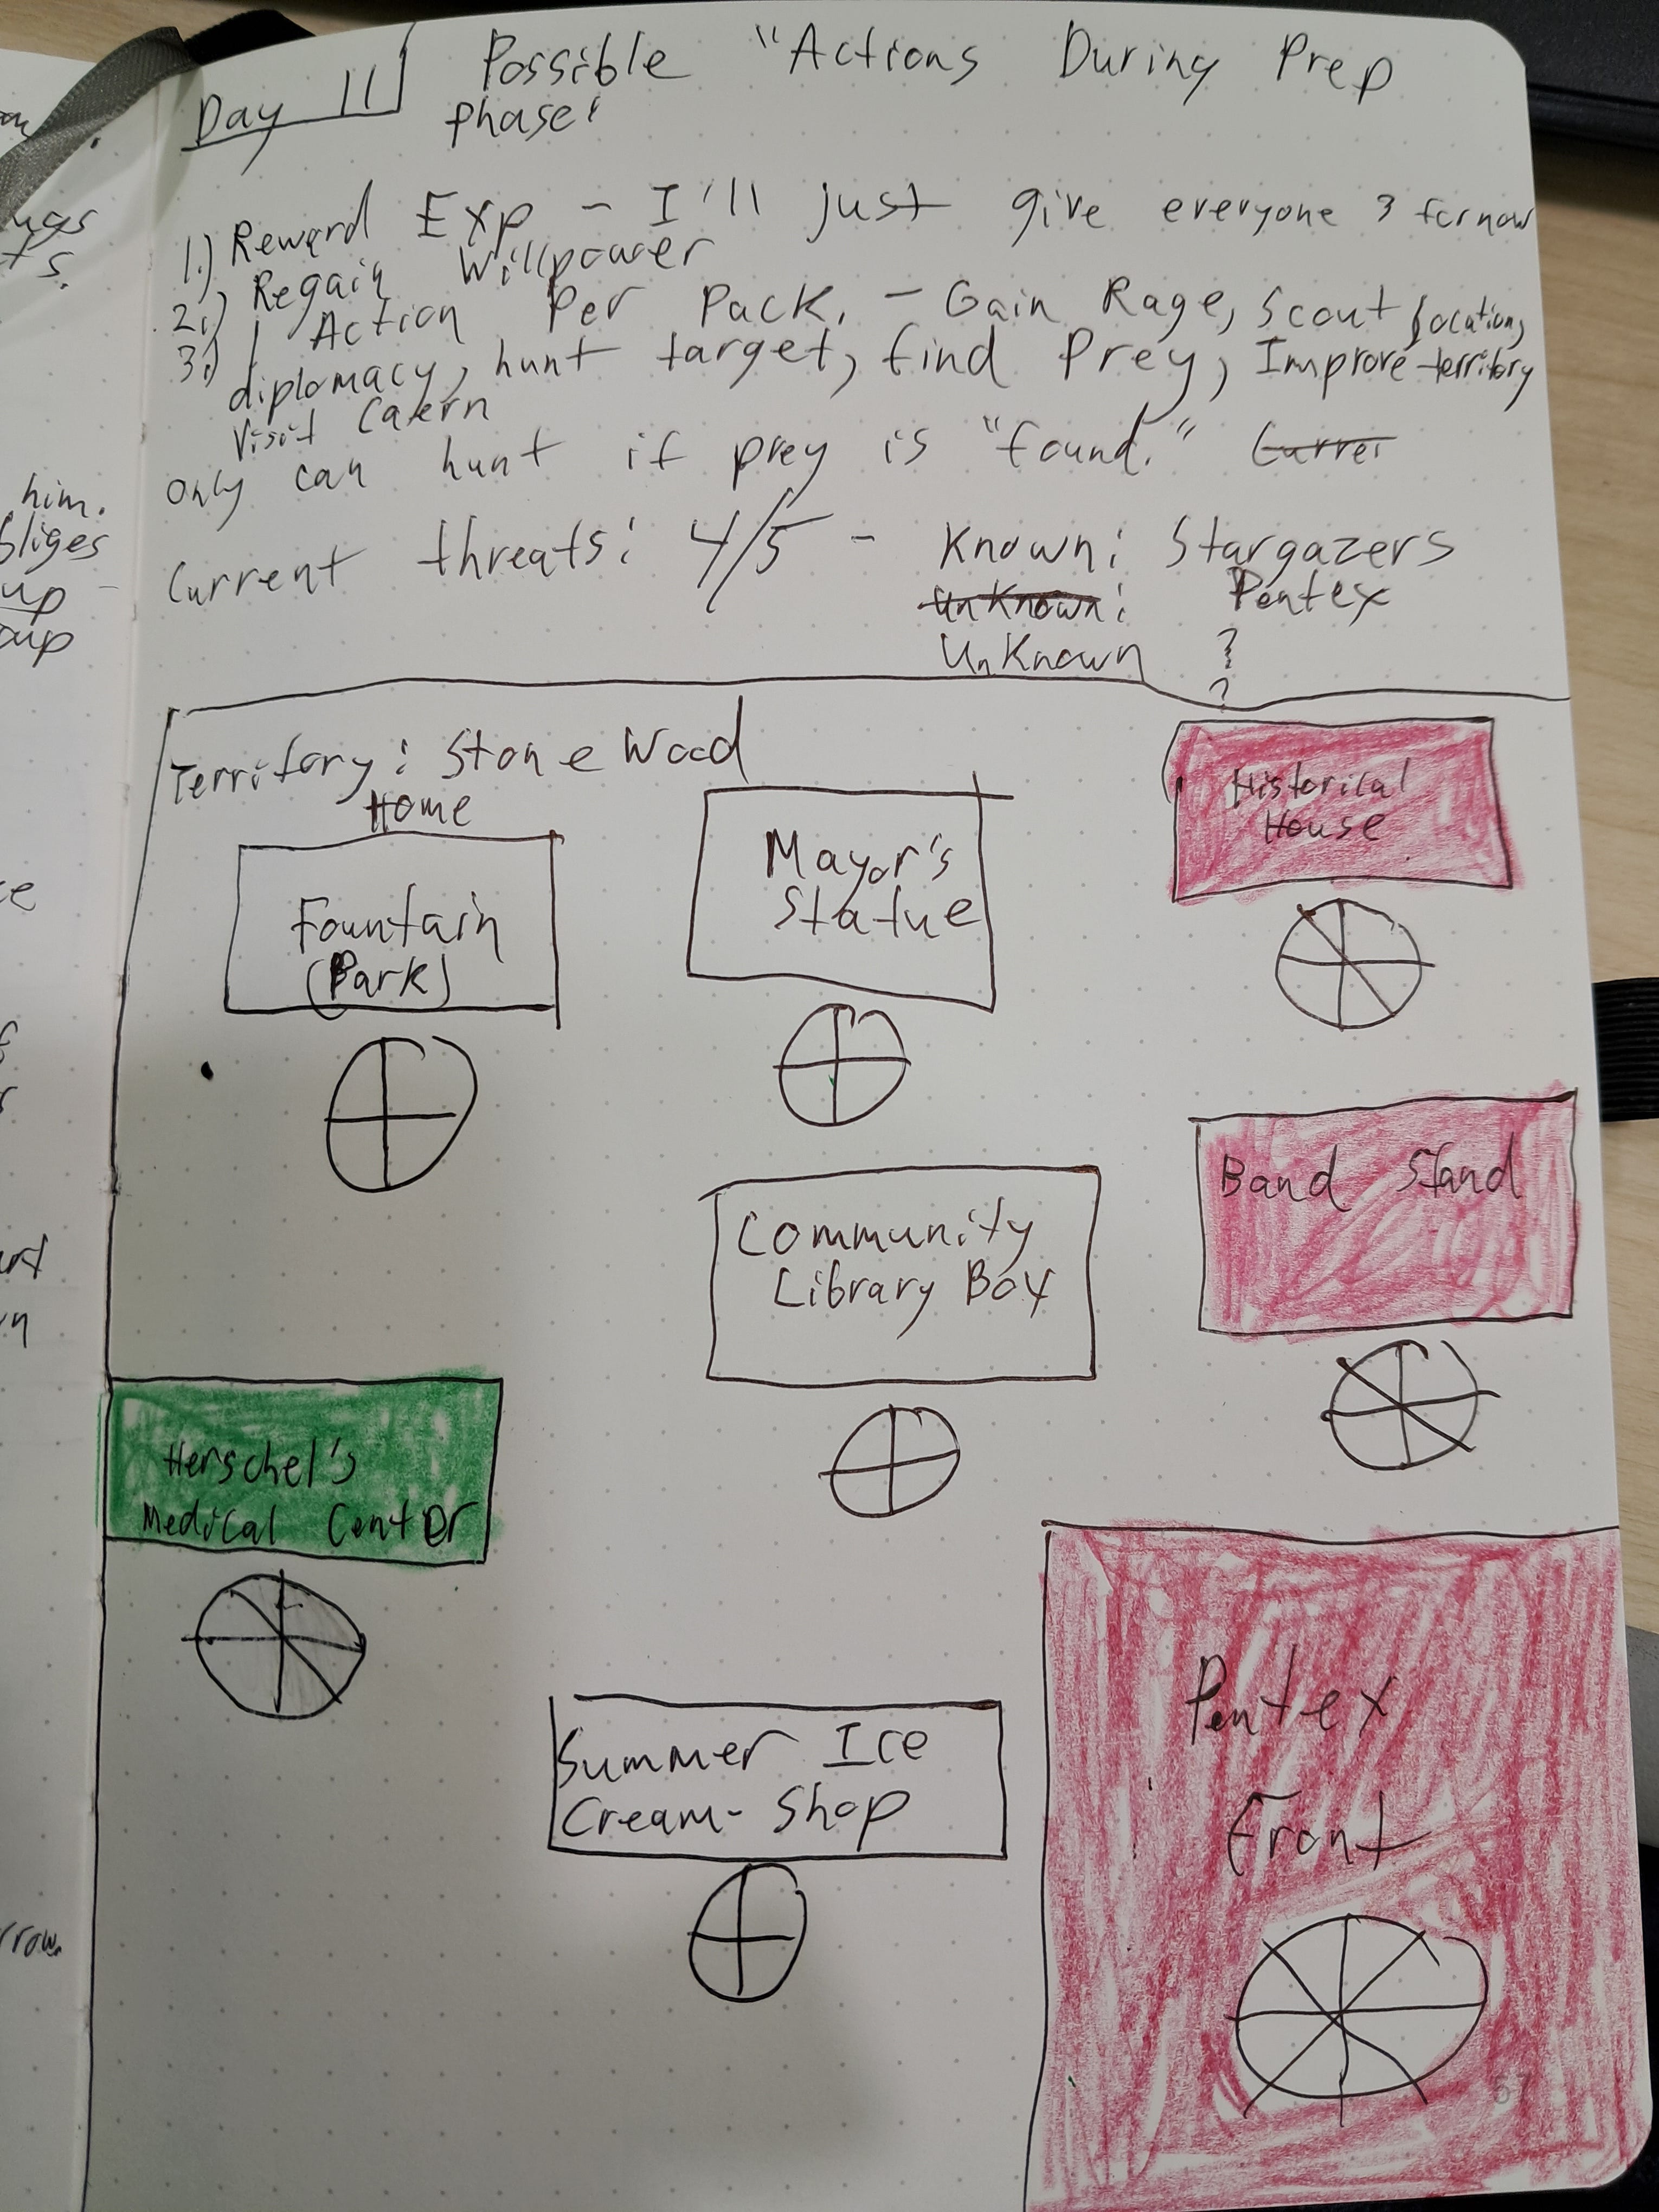 Day 11
Possible "Actions During Prep
phase:
1.) Reward Exp - I'll just give everyone 3 for now
2.) Regain Willpower
3.) 1 Action Per Pack. - Gain Rage, Scout location,
diplomacy, hunt target, find Prey, Improve territory
Visit Caern
only can hunt if prey is "found."
Current threats: 4/5 - Known: Stargazers
UnKnown: Pentex
UnKnown ?
?
Territory: Stone Wood
Home
Fountain
(Park)
Mayor's
Statue
Historical
House
Community
Library Box
Band Stand
Herschel's
Medical Center
Summer Ice
Cream- Shop
Pentex
Front
57
ugs
s.
him.
bliges
up
oup
ce
rrow.